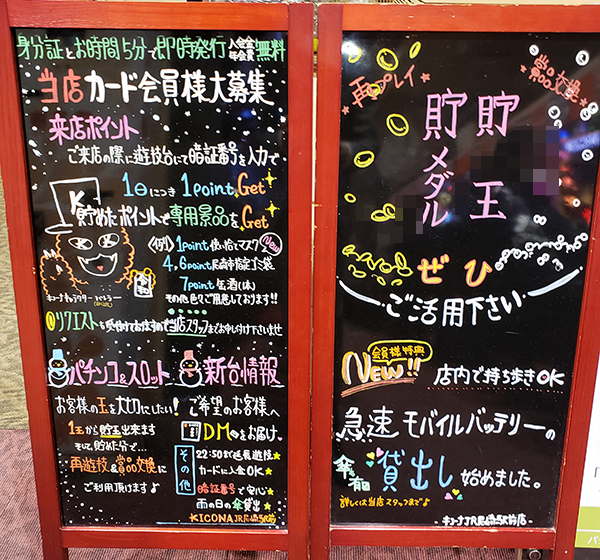 身分証とお時間5分で即時発行 入会金年会費無料
当店カード会員様大募集
来店ポイント
ご来店の際に遊技台にて暗証番号を入力で
1日につき 1point Get
貯めたポイントで専用景品をGet
(例) 1point マスク New
4,6point 尼崎市指定ゴミ袋
7point 缶酒(1本)
その他色々ご用意しております!!
K
キコーナキャラクター バトラー
リクエストも受付けておりますので当店スタッフまでお申し付け下さいませ
パチンコ&スロット 新台情報
お客様の玉を大切にしたい!
1玉から貯玉出来ます
そして貯めた分で...
再遊技&賞品交換に
ご利用頂けます♪
ご希望のお客様へ
DMをお届け
その他
22:50まで延長遊技
カードに入金OK
暗証番号で安心
雨の日の傘貸出
KICONA JR尼崎駅前店
再プレイ
賞品交換
貯玉
貯メダル
ぜひ
ご活用下さい
会員様特典
NEW!!
店内で持ち歩きOK
急速モバイルバッテリーの
傘有
貸出し始めました。
詳しくは当店スタッフまで♪
キコーナJR尼崎駅前店